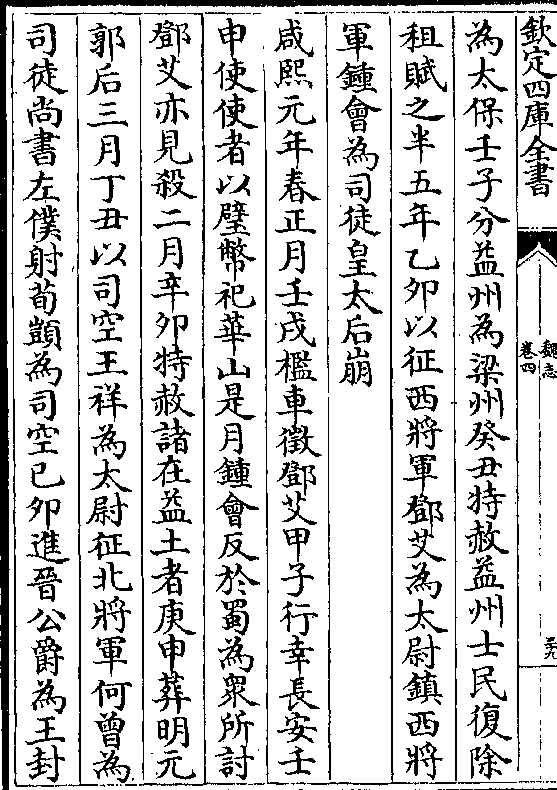 欽定四庫全書
魏志
卷四
三九
為太保壬子分益州為梁州癸丑特赦益州士民復除
租賦之半五年乙卯以征西將軍鄧艾為太尉鎮西將
軍鍾會為司徒皇太后崩
咸熙元年春正月壬戌檻車徵鄧艾甲子行幸長安壬
申使使者以璧幣祀華山是月鍾會反於蜀為衆所討
鄧艾亦見殺二月辛卯特赦諸在益土者庚申葬明元
郭后三月丁丑以司空王祥為太尉征北將軍何曾為
司徒尚書左僕射荀顗為司空己卯進晉公爵為王封